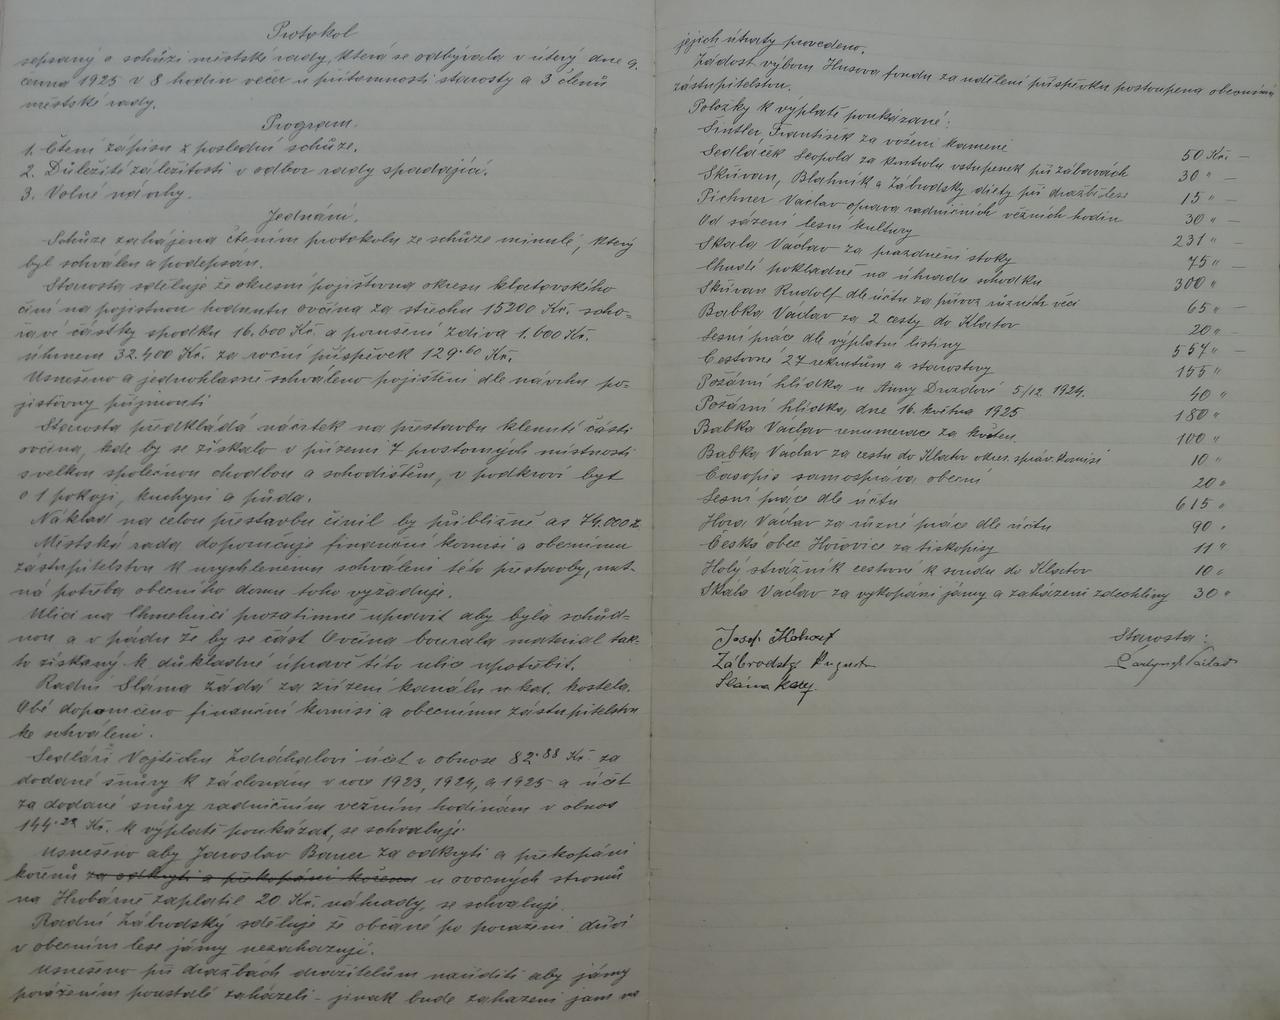 Protokol
sepsaný o schůzi městské rady, která se odbývala v úterý dne 9.
června 1925 v 8 hodin večer u přítomnosti starosty a 3 členů
městské rady.
Program.
1. Čtení zápisu z poslední schůze.
2. Důležité záležitosti v odbor rady spadající.
3. Volné návrhy.
Jednání.
Schůze zahájena čtením protokolu ze schůze minulé, který
byl schválen a podepsán.
Starosta sděluje že okresní pojišťovna okresu klatovského
činí na pojistnou hodnotu ovčína za střechu 15200 Kč. scho-
řavé částky spodku 16.600 Kč. a porušení zdiva 1.600 Kč.
úhrnem 32.400 Kč. za roční příspěvek 129.60 Kč.
Usnešeno a jednohlasně schváleno pojištění dle návrhu po-
jišťovny přijmouti
Starosta předkládá náčrtek na přestavbu klenuté části
ovčína, kde by se získalo v přízemí 7 prostorných místností
s velkou společnou chodbou a schodištěm, v podkroví byt
o 1 pokoji, kuchyni a půda.
Náklad na celou přestavbu činil by přibližně as 74.000 K.
Městská rada doporučuje finanční komisi a obecnímu
zastupitelstvu k urychlenému schválení této přestavby, nut-
ná potřeba obecního domu toho vyžaduje.
Ulici na Chmelnici prozatimně upravit aby byla schůd-
nou a v pádu že by se část Ovčína bourala material tak-
to získaný k důkladné úpravě této ulice upotřebit.
Radní Sláma žádá za zřízení kanálu u kat. kostela.
Obé doporučeno finanční komisi a obecnímu zastupitelstvu
ke schválení.
Sedláři Vojtěchu Zdráhalovi účet v obnose 82.88 Kč. za
dodané šnůry k záclonám v roce 1923, 1924, a 1925 a účet
za dodané šnůry radničním věžním hodinám v obnos
144.22 Kč. k výplatě poukázat, se schvaluje.
Usnešeno aby Jaroslav Bauer za odkrytí a překopání
kořenů za odkrytí a překopání kořenů u ovocných stromů
na Hrobárně zaplatil 20 Kč. náhrady, se schvaluje.
Radní Zábrodský sděluje že občané po poražení dříví
v obecním lese jámy nezahazují.
Usnešeno při dražbách dražitelům naříditi aby jámy
poražením povstalé zaházeli - jinak bude zaházení jam na
jejich útraty provedeno.
Žádost výboru Husova fondu za udělení příspěvku postoupena obecnímu
zastupitelstvu.
Položky k výplatě poukázané:
Šintler František za vožení kamení 50 Kč. —
Sedláček Leopold za kontrolu vstupenek při zábavách 30 " —
Skůvan, Blahník a Zábrodský diety při dražbě lese 15 " —
Pichner Václav oprava radničních věžních hodin 30 " —
Od sázení lesní kultury 231 " —
Skala Václav za prazdnění stoky 75 " —
Chudé pokladně na úhradu schodku 300 "
Skůvan Rudolf dle účtu za převoz různých věcí 65 " —
Babka Václav za 2 cesty do Klatov 20 " —
Lesní práce dle výplatní listiny 557 " —
Cestovné 27 rekrutům a starostovy 155 "
Požární hlídka u Anny Drozdové 5/12. 1924. 40 "
Požární hlídka dne 16. května 1925 180 "
Babka Václav renumerace za květen 100 "
Babka Václav za cestu do Klatov okres. správ. komisi 10 "
Časopis samospráva obecní 20 "
Lesní práce dle účtu 615 "
Hora Václav za různé práce dle účtu 90 "
Česká obec Hořovice za tiskopisy 11 "
Holý strážník cestovné k soudu do Klatov 10 "
Skala Václav za vykopání jámy a zaházení zdechliny 30 "
Starosta:
Zábrodský August
Sláma Karel